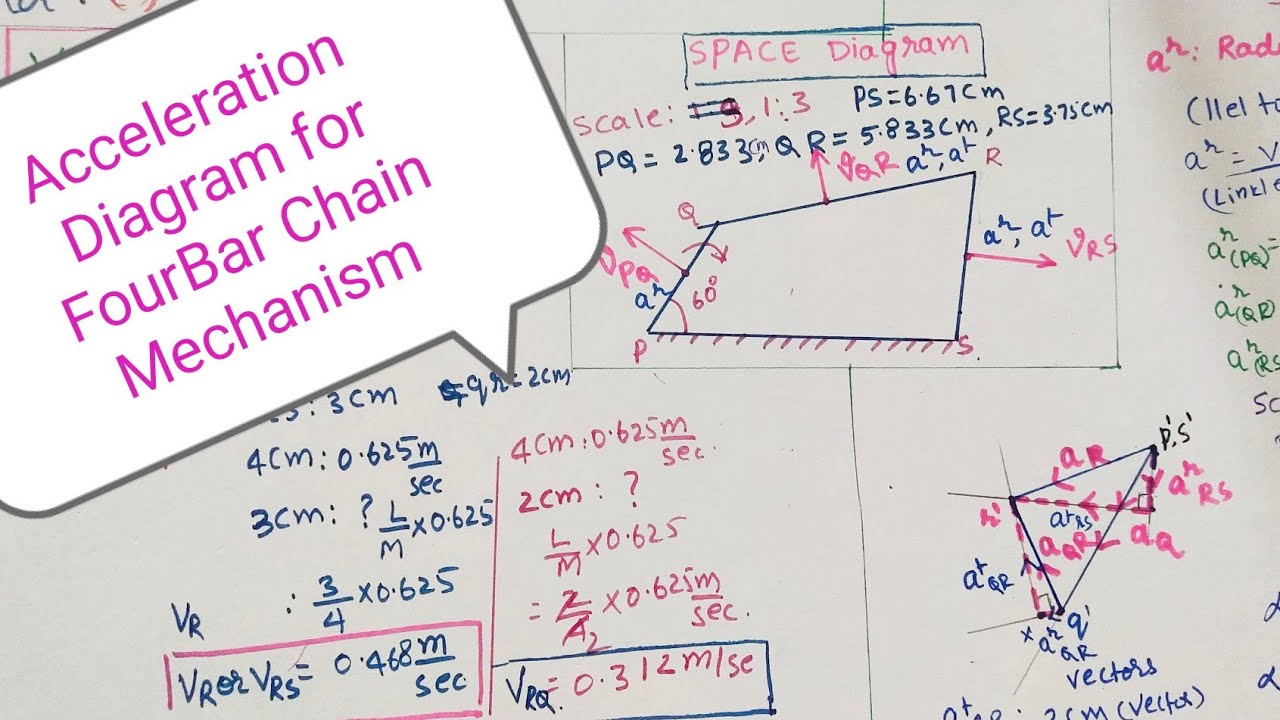 Acceleration
Diagram for
FourBar Chain
Mechanism
SPACE Diagram
Scale: 1:3
PS=6.67cm
PQ = 2.833cm, QR = 5.833cm, RS=3.75cm
VQR aʳ, aᵗ R
Q
VPQ
aʳ
60°
aʳ, aᵗ
VRS
P
S.
aʳ: Rad
(llel to
aʳ = V
(Link
aʳ(PQ)=
aʳ(QR)
aʳ(RS
Sc
: 3cm qr: 2cm
4cm: 0.625 m/sec
3cm: ? L/M x0.625
: 3/4 x0.625
VR
VR or VRS = 0.468 m/sec
4cm: 0.625 m/sec.
2cm: ?
L/M x0.625
= 2/4 2 x0.625 m/sec.
VRQ = 0.312 m/se
p', s'
aR
aʳRS
r'
aᵗRS
aQR
aQ
aᵗQR
x aʳQR q'
vectors
: 2cm (vector)